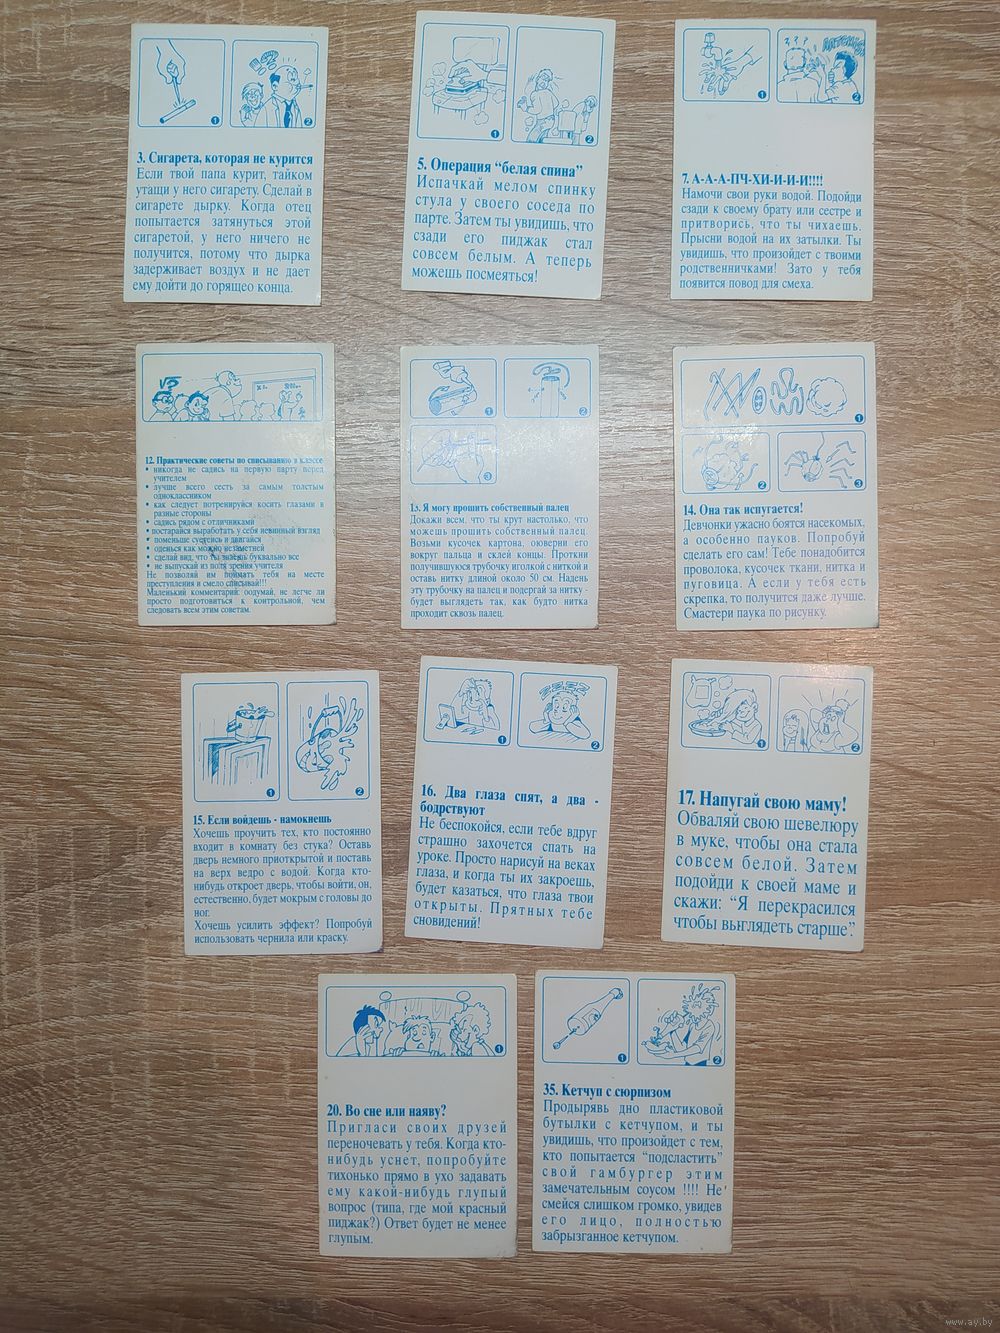 3. Сигарета, которая не курится
Если твой папа курит, тайком
утащи у него сигарету. Сделай в
сигарете дырку. Когда отец
попытается затянуться этой
сигаретой, у него ничего не
получится, потому что дырка
задерживает воздух и не дает
ему дойти до горящео конца.
5. Операция “белая спина”
Испачкай мелом спинку
стула у своего соседа по
парте. Затем ты увидишь, что
сзади его пиджак стал
совсем белым. А теперь
можешь посмеяться!
7. А-А-А-ПЧ-ХИ-И-И-И!!!!
Намочи свои руки водой. Подойди
сзади к своему брату или сестре и
притворись, что ты чихаешь.
Прысни водой на их затылки. Ты
увидишь, что произойдет с твоими
родственничками! Зато у тебя
появится повод для смеха.
12. Практические советы по списыванию в классе
• никогда не садись на первую парту перед
учителем
• лучше всего сесть за самым толстым
одноклассником
• как следует потренируйся косить глазами в
разные стороны
• садись рядом с отличниками
• постарайся выработать у себя невинный взгляд
• поменьше суетись и двигайся
• оденься как можно незаметней
• сделай вид, что ты знаешь буквально все
• не выпускай из поля зрения учителя
Не позволяй им поймать тебя на месте
преступления и смело списывай!!!
Маленький комментарий: оодумай, не легче ли
просто подготовиться к контрольной, чем
следовать всем этим советам.
13. Я могу прошить собственный палец
Докажи всем, что ты крут настолько, что
можешь прошить собственный палец.
Возьми кусочек картона, оюверни его
вокруг пальца и склей концы. Проткни
получившуюся трубочку иголкой с ниткой и
оставь нитку длиной около 50 см. Надень
эту трубочку на палец и подергай за нитку -
будет выглядеть так, как будто нитка
проходит сквозь палец.
14. Она так испугается!
Девчонки ужасно боятся насекомых,
а особенно пауков. Попробуй
сделать его сам! Тебе понадобится
проволока, кусочек ткани, нитка и
пуговица. А если у тебя есть
скрепка, то получится даже лучше.
Смастери паука по рисунку.
15. Если войдешь - намокнешь
Хочешь проучить тех, кто постоянно
входит в комнату без стука? Оставь
дверь немного приоткрытой и поставь
на верх ведро с водой. Когда кто-
нибудь откроет дверь, чтобы войти, он,
естественно, будет мокрым с головы до
ног.
Хочешь усилить эффект? Попробуй
использовать чернила или краску.
16. Два глаза спят, а два -
бодрствуют
Не беспокойся, если тебе вдруг
страшно захочется спать на
уроке. Просто нарисуй на веках
глаза, и когда ты их закроешь,
будет казаться, что глаза твои
открыты. Прятных тебе
сновидений!
17. Напугай свою маму!
Обваляй свою шевелюру
в муке, чтобы она стала
совсем белой. Затем
подойди к своей маме и
скажи: “Я перекрасился
чтобы выглядеть старше”.
20. Во сне или наяву?
Пригласи своих друзей
переночевать у тебя. Когда кто-
нибудь уснет, попробуйте
тихонько прямо в ухо задавать
ему какой-нибудь глупый
вопрос (типа, где мой красный
пиджак?) Ответ будет не менее
глупым.
35. Кетчуп с сюрпизом
Продырявь дно пластиковой
бутылки с кетчупом, и ты
увидишь, что произойдет с тем,
кто попытается “подсластить”
свой гамбургер этим
замечательным соусом !!!! Не
смейся слишком громко, увидев
его лицо, полностью
забрызганное кетчупом.
www.ay.by